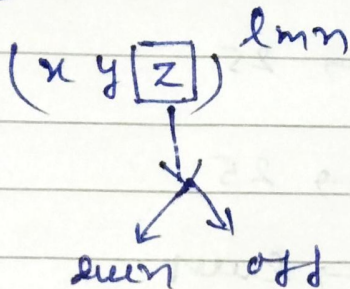 (x y z) lmn
even odd